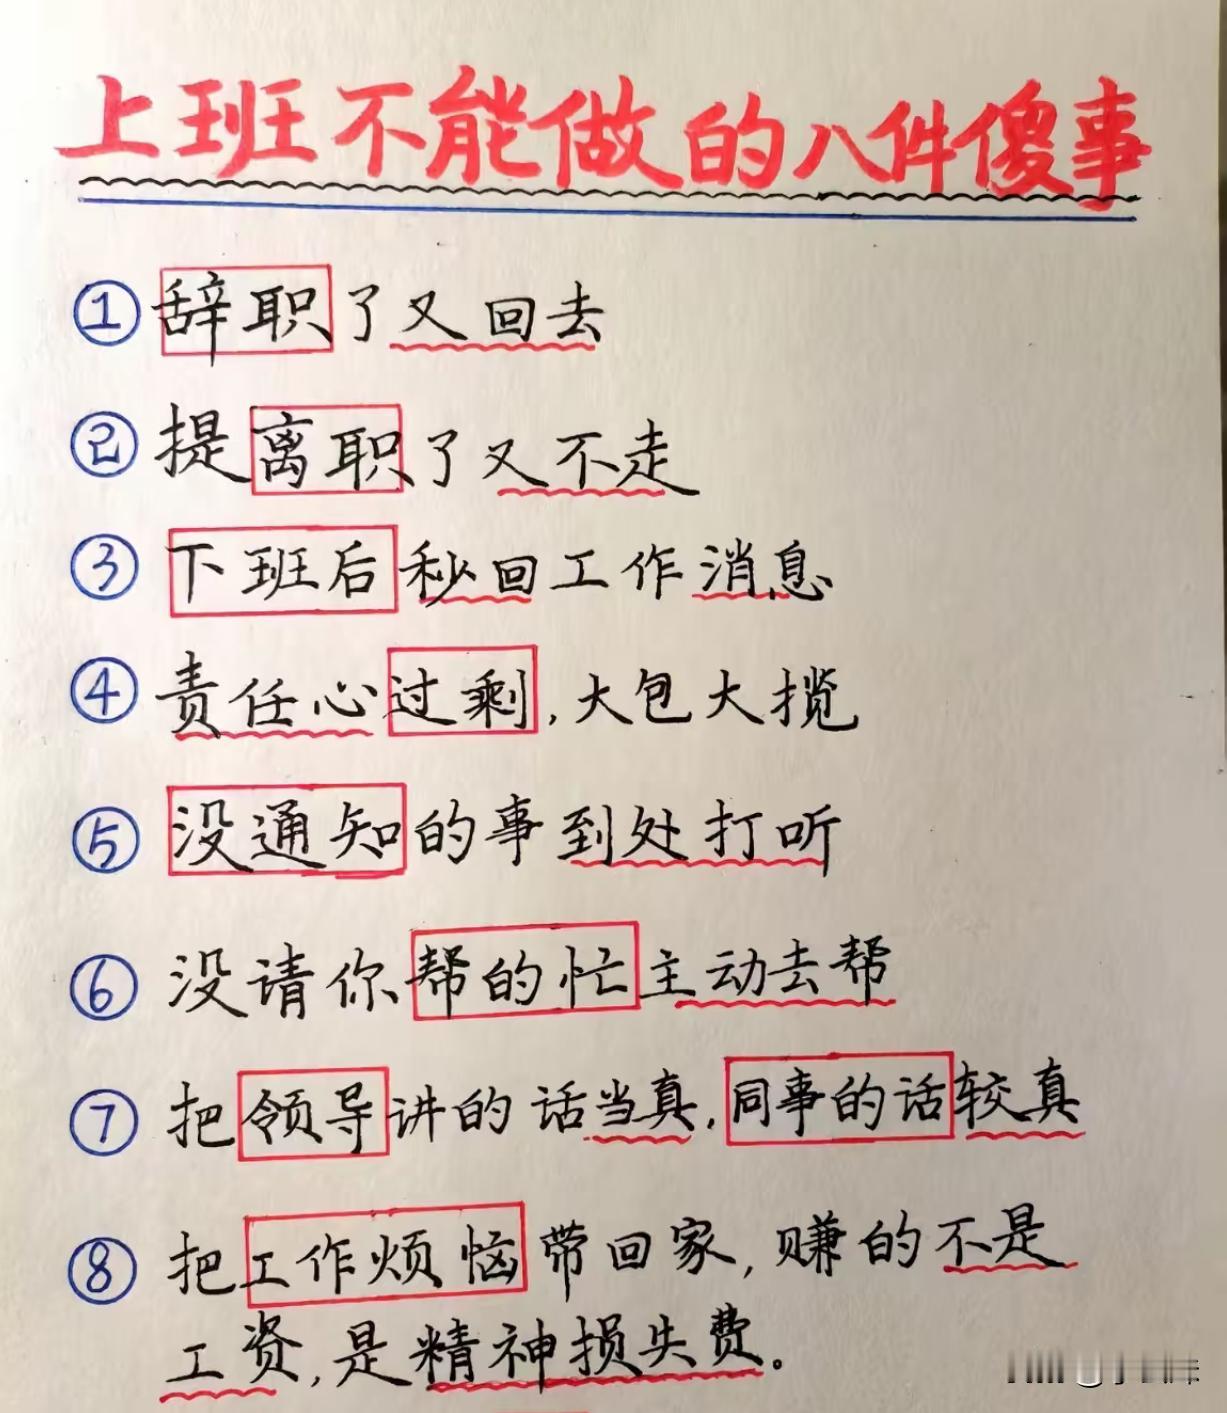 上班不能做的八件傻事
①辞职了又回去
②提离职了又不走
③下班后秒回工作消息
④责任心过剩,大包大揽
⑤没通知的事到处打听
⑥没请你帮的忙主动去帮
⑦把领导讲的话当真,同事的话较真
⑧把工作烦恼带回家,赚的不是
工资,是精神损失费。